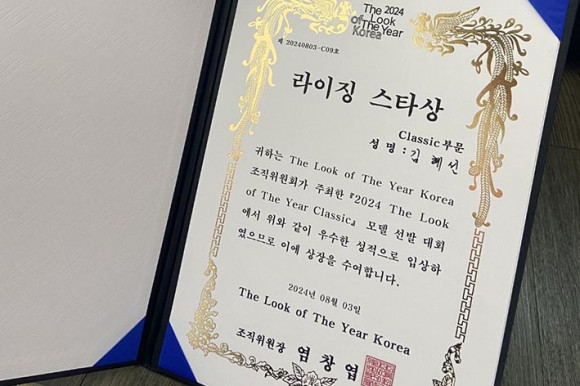 The 2024
Look
of The Year
Korea
제 20240803-C09호
라이징 스타상
Classic부문
성 명 : 김 혜 선
귀하는 The Look of The Year Korea
조직위원회가 주최한 『2024 The Look
of The Year Classic』 모델 선발 대회
에서 위와 같이 우수한 성적으로 입상하
였으므로 이에 상장을 수여합니다.
2024년 08월 03일
The Look of The Year Korea
조직위원장 엄 창 엽